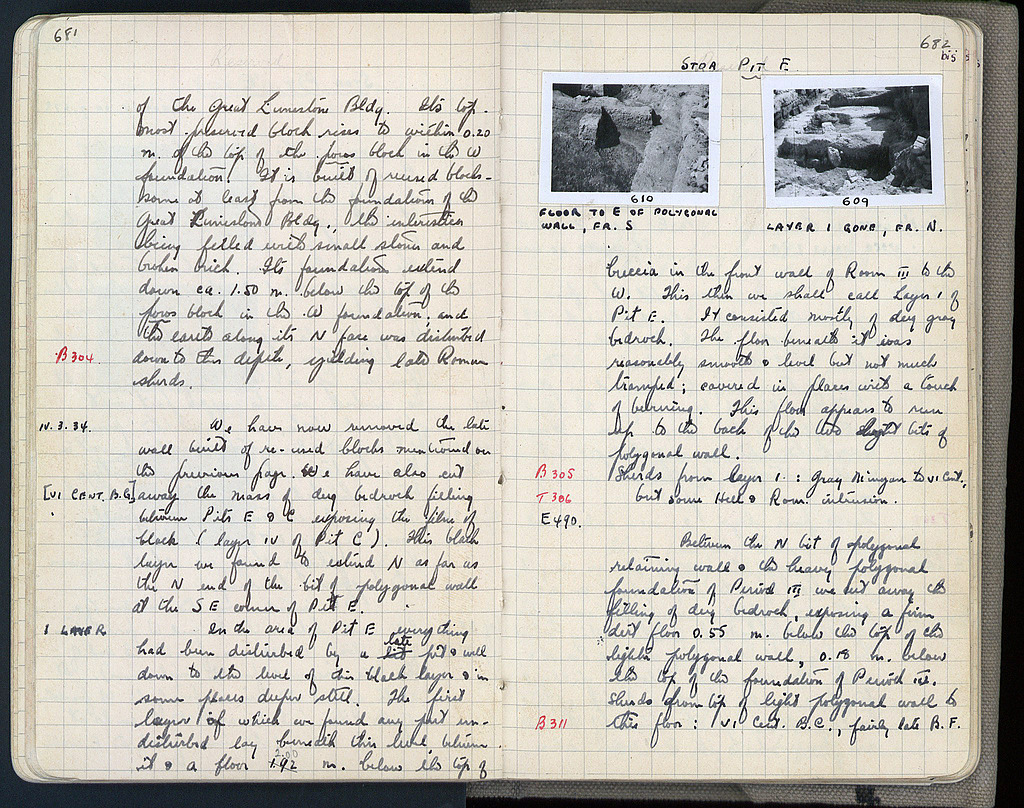 681
of the Great Limestone Bldg. Its top-
most preserved block rises to within 0.20
m. of the top of the poros block in the W
foundation. It is built of reused blocks -
some at least from the foundations of the
Great Limestone Bldg., the interstices
being filled with small stones and
broken brick. Its foundations extend
down ca. 1.50 m. below the top of the
poros block in the W foundation, and
the earth along its N face was disturbed
B304 down to this depth, yielding late Roman
sherds.
IV.3.34. We have now removed the late
wall built of re-used blocks mentioned on
the previous page. We have also cut
[VI CENT. B.C.] away the mass of dug bedrock filling
between Pits E & C exposing the filling of
black (layer IV of Pit C). This black
layer we found to extend N as far as
the N end of the bit of polygonal wall
at the SE corner of Pit E.
1 LAYER In the area of Pit E everything
had been disturbed by a late pit & well
down to the level of this black layer & in
some places deeper still. The first
layer of which we found any part un-
disturbed lay beneath this level between
it & a floor 1.92 2.00 m. below the top of
682
bis
STOA PIT E
610
609
FLOOR TO E OF POLYGONAL
WALL, FR. S
LAYER 1 GONE, FR. N.
breccia in the front wall of Room III to the
W. This then we shall call Layer 1 of
Pit E. It consisted mostly of dug gray
bedrock. The floor beneath it was
reasonably smooth & level but not much
tramped; covered in places with a touch
of burning. This floor appears to run
up to the back of the two slight bits of
polygonal wall.
B305 Sherds from layer 1: Gray Minyan to VI Cent.
T306 but some Hell & Rom. intrusion.
E490.
Between the N bit of polygonal
retaining wall & the heavy polygonal
foundation of Period III we cut away the
filling of dug bedrock, exposing a firm
dirt floor 0.55 m. below the top of the
lighter polygonal wall, 0.18 m. below
the top of the foundation of Period III.
Sherds from top of light polygonal wall to
B311 this floor: VI Cent. B.C., fairly late B.F.